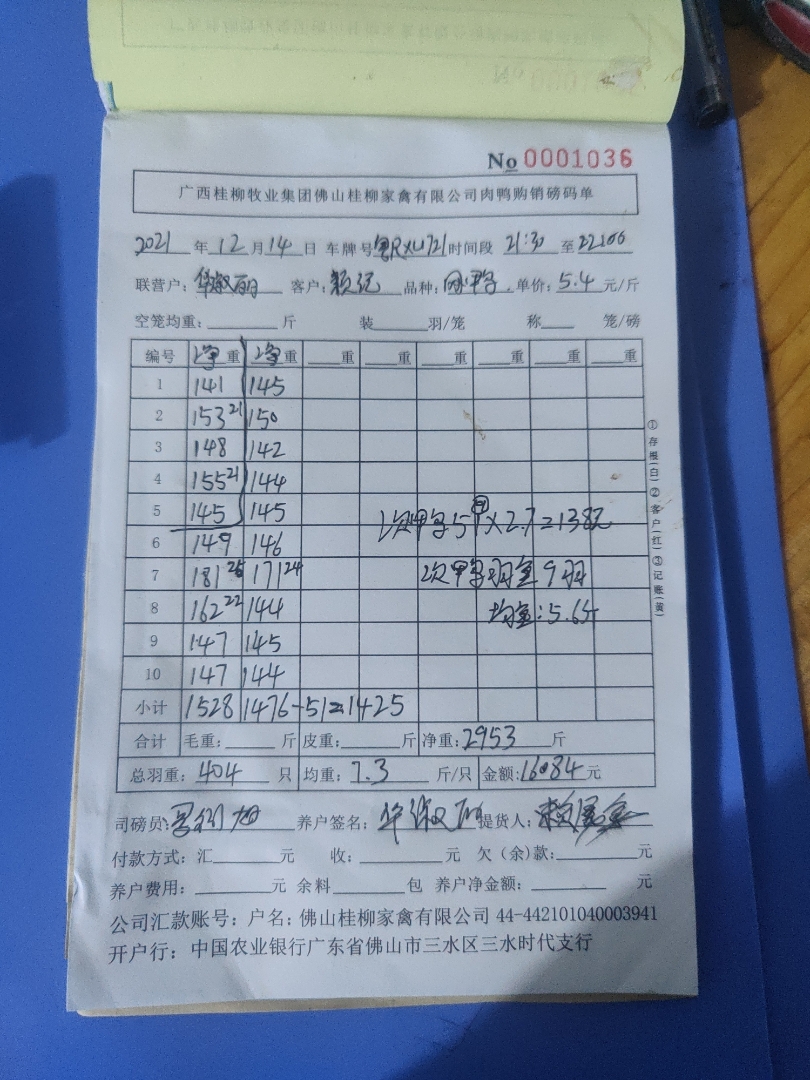 No 0001036
广西桂柳牧业集团佛山桂柳家禽有限公司肉鸭购销磅码单
2021 年 12 月 14 日 车牌号 时间段 21:30 至 22:00
联营户: 华淑丽 客户: 品种: 单价: 5.4 元/斤
空笼均重: 斤 装 羽/笼 称 笼/磅
编号 净重 净重 重 重 重 重 重 重
1 141 145
2 153 21 150
3 148 142
4 155 21 144
5 145 145 次甲子51斤×2.7=138元
6 149 146
7 181 25 171 24 次甲子羽重9羽
8 162 22 144 均重:5.6斤
9 147 145
10 147 144
小计 1528 1476-51=1425
合计 毛重: 斤 皮重: 斤 净重: 2953 斤
总羽重: 404 只 均重: 7.3 斤/只 金额: 16084 元
司磅员: 养户签名: 华淑丽 提货人:
付款方式: 汇 元 收: 元 欠(余)款: 元
养户费用: 元 余料 包 养户净金额: 元
公司汇款账号: 户名: 佛山桂柳家禽有限公司 44-442101040003941
开户行: 中国农业银行广东省佛山市三水区三水时代支行
①存根(白)②客户(红)③记账(黄)